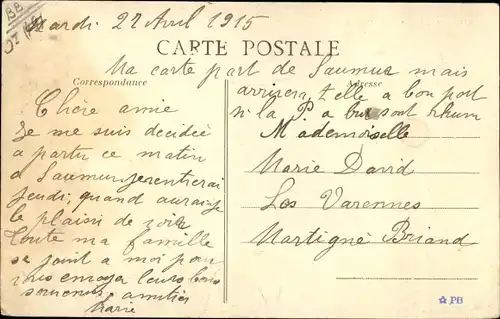 Mardi 27 Avril 1915
CARTE POSTALE
Ma carte part de Saumur mais
Correspondance
Adresse
arrivera t elle a bon port
si la P. a bu sont rhum
Chère amie
Je me suis decidée
a partir ce matin
a Saumur je rentrerai
jeudi, quand aurai-je
le plaisir de
Toute ma famille
se joint a moi pour
envoyer leurs bons
souvenirs. amitiés
Marie
Mademoiselle
Marie David
Les Varennes
Martigné Briand
PB